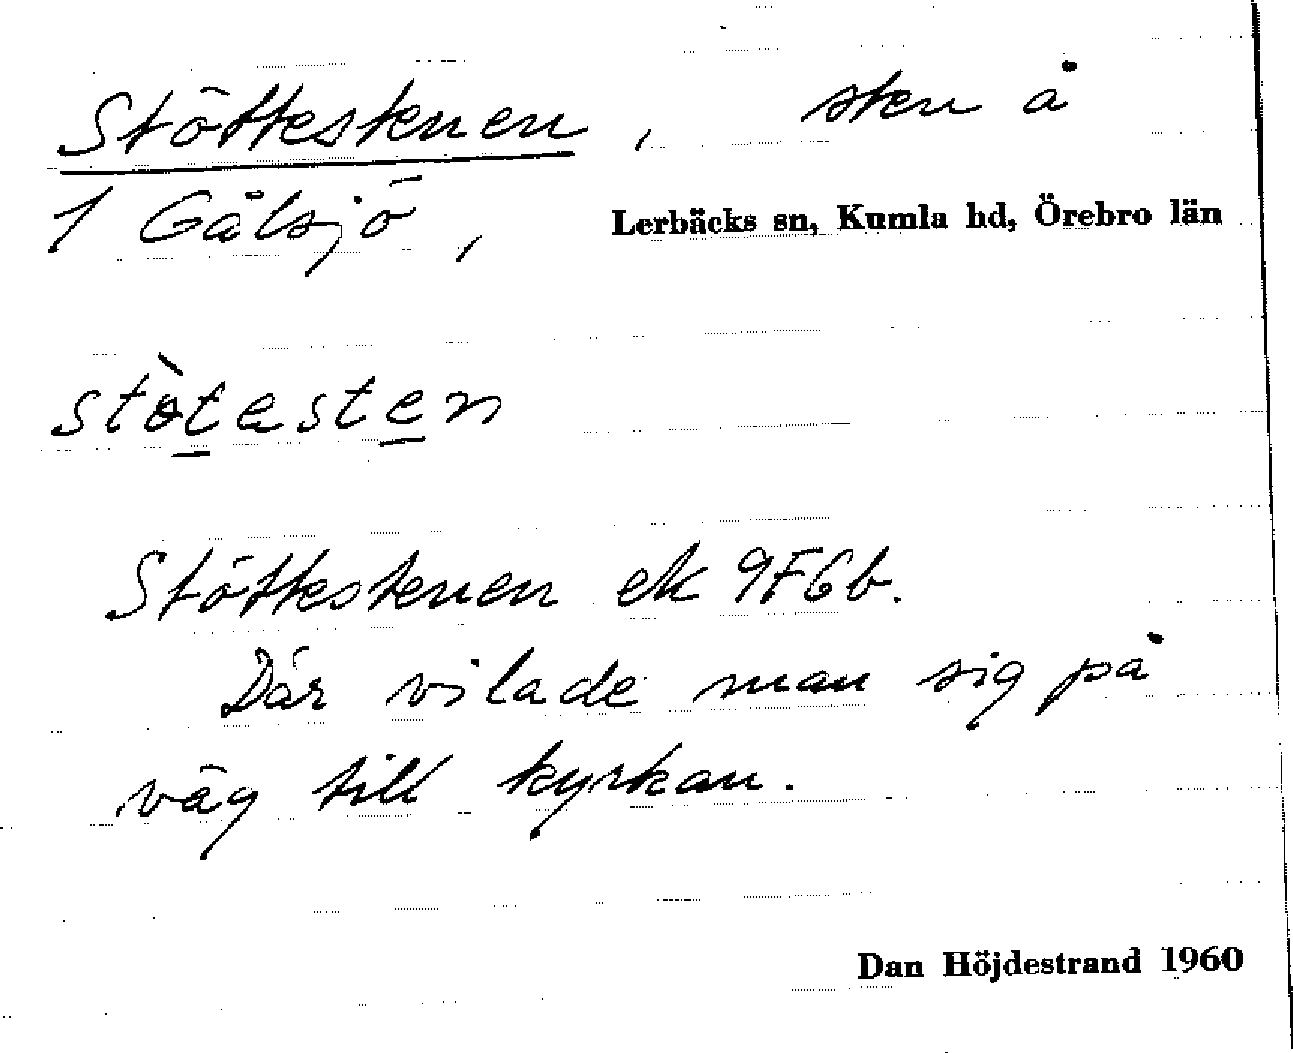 Stöttestenen, sten å
1 Gålsjö, Lerbäcks sn, Kumla hd, Örebro län
stòtesten
Stöttestenen ek 9F6b.
Där vilade man sig på
väg till kyrkan.
Dan Höjdestrand 1960